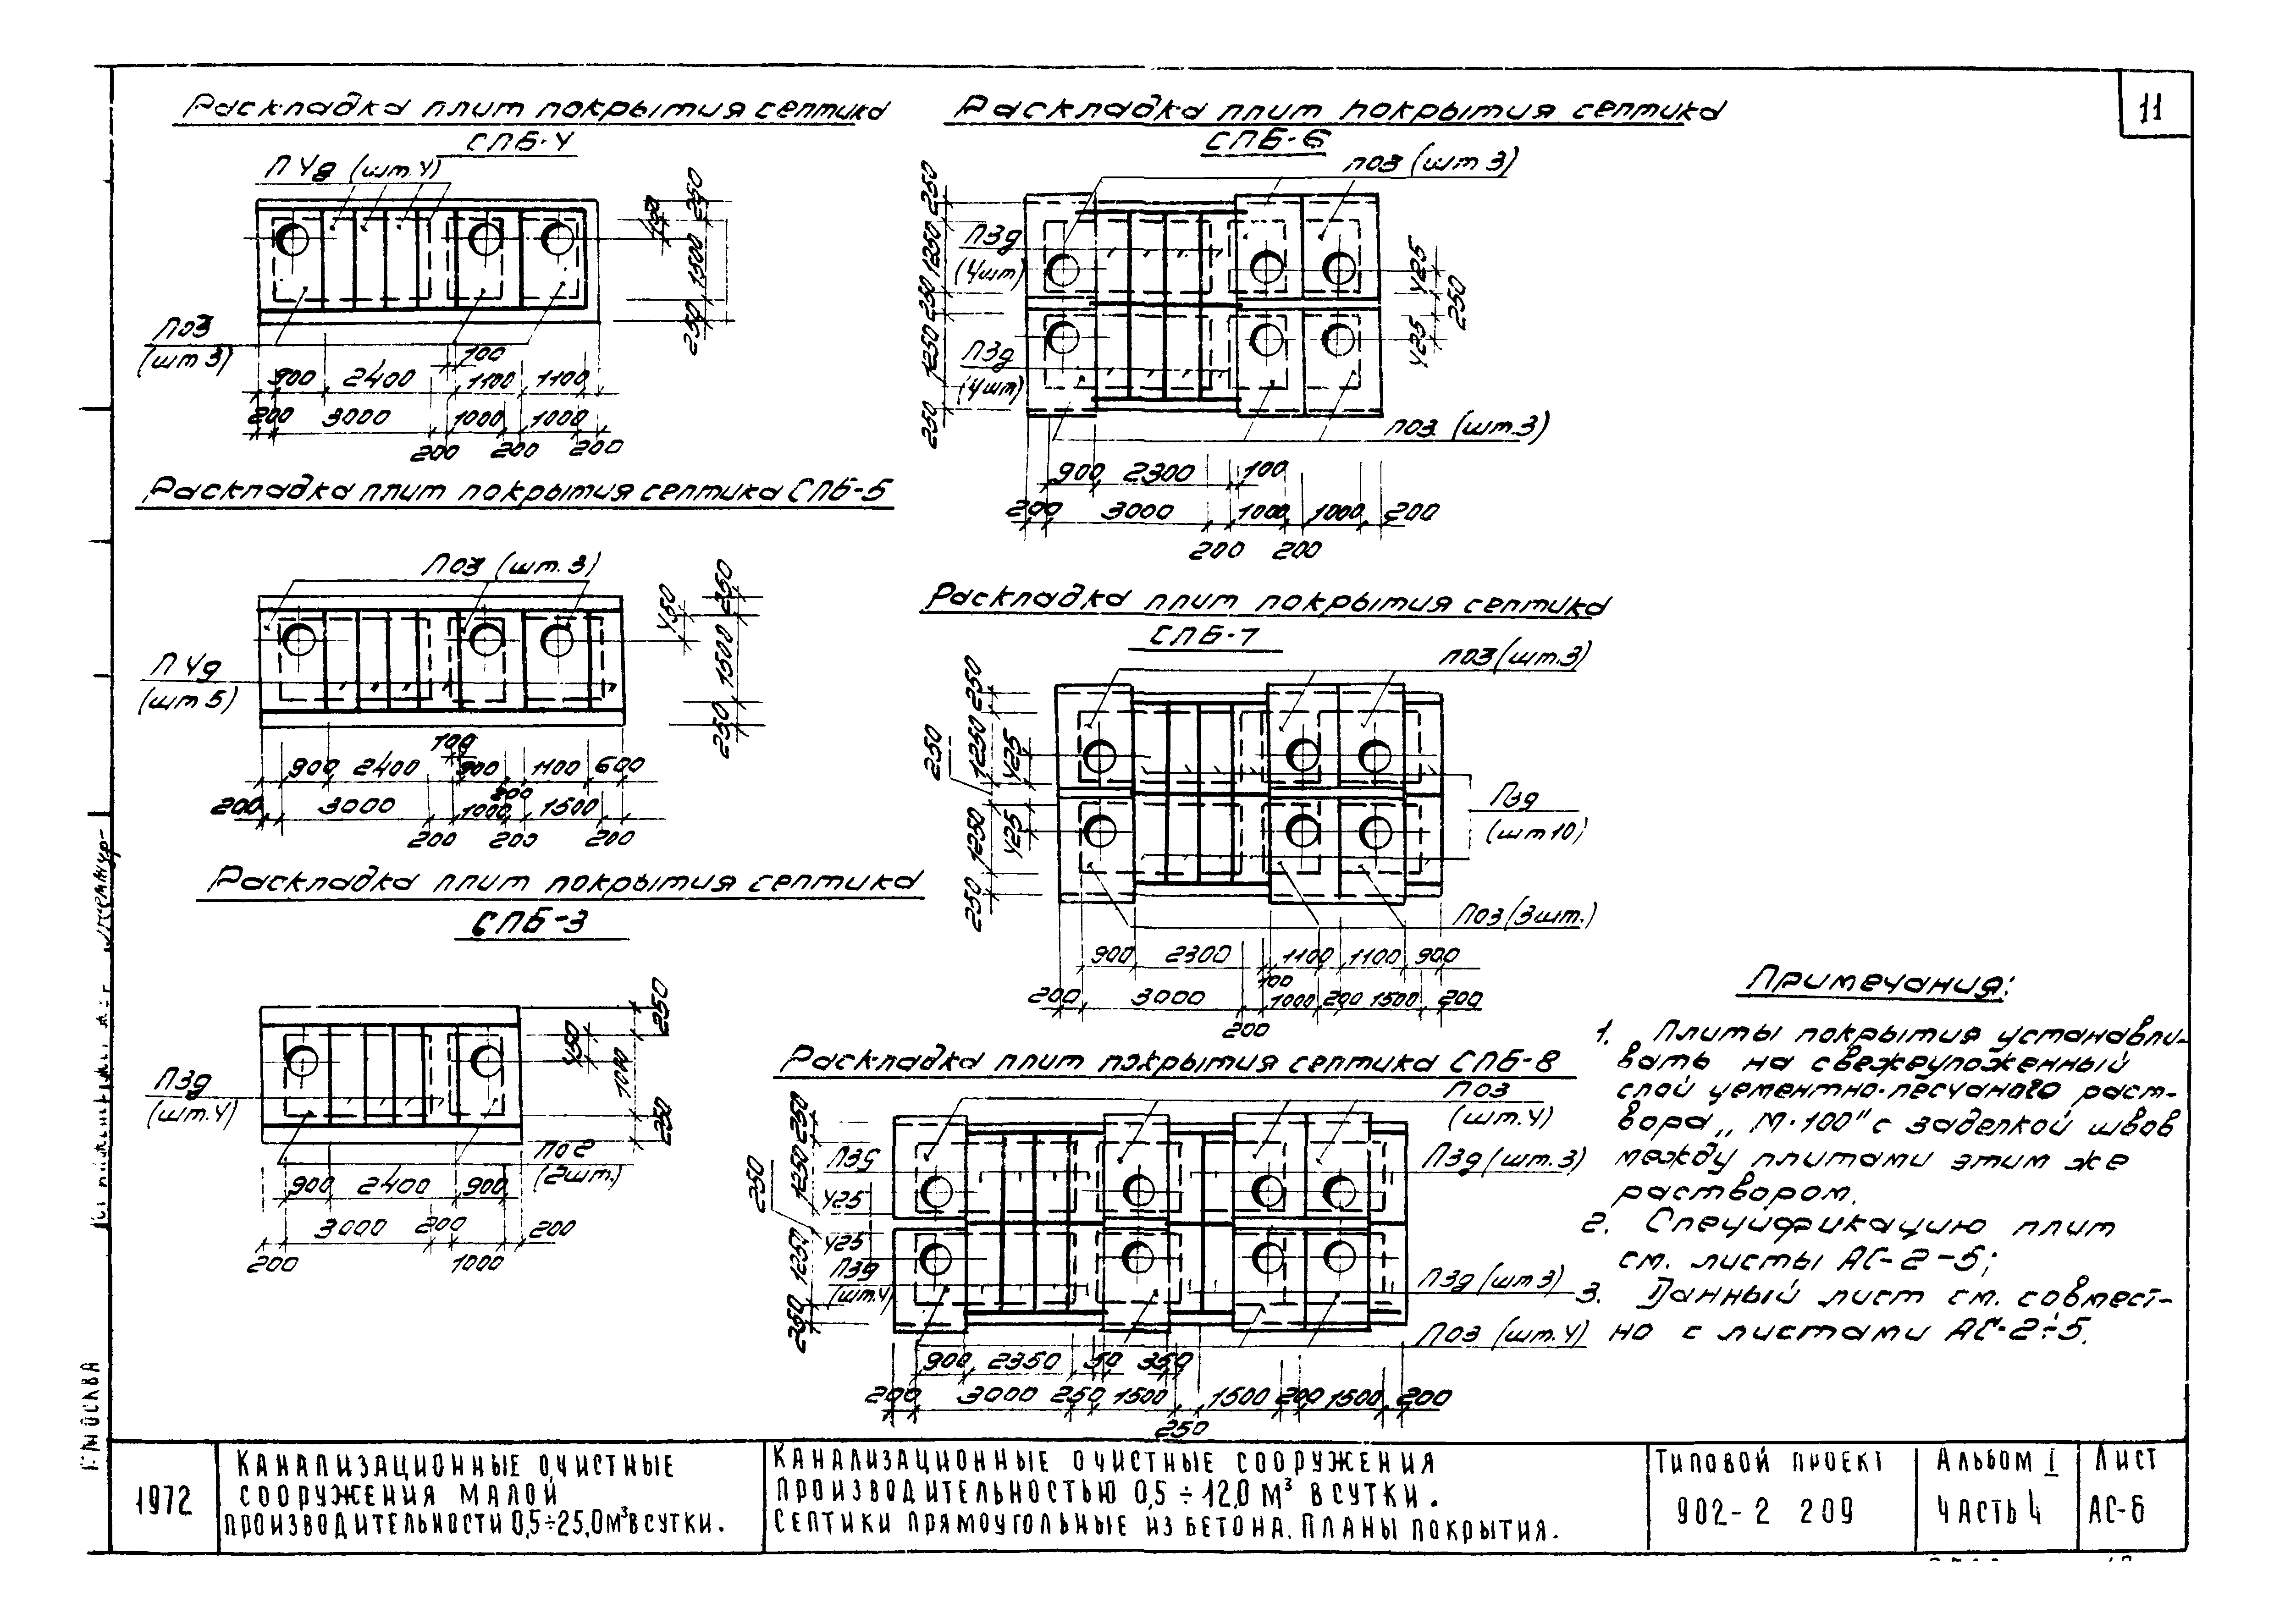 11
Раскладка плит покрытия септика
СПБ-4
П4д (шт.4)
250
1500
250
ПО3
(шт 3)
100
900 2400 1100 1100
200 3000 1000 1000
200 200 200
Раскладка плит покрытия септика СПБ-5
ПО3 (шт.3)
П4д
(шт 5)
450
250
1500
250
100
900 2400 900 1100 600
200
200 3000 1000 1500
200 200 200
Раскладка плит покрытия септика
СПБ-3
П3д
(шт.4)
450
250
250
ПО2
(2шт.)
900 2400 900
3000 200 200
200 1000
Раскладка плит покрытия септика
СПБ-6
ПО3 (шт 3)
П3д
(4шт)
П3д
(4шт)
250
1250
250
1250
250
425
250
425
ПО3 (шт.3)
900 2300 100
200 3000 1000 1000 200
200 200
Раскладка плит покрытия септика
СПБ-7
ПО3 (шт.3)
250
1250
425
250
425
1250
250
П3д
(шт 10)
ПО3 (3шт.)
900 2300 1100 1100 900
100
200 3000 1000 200 1500 200
200
Раскладка плит покрытия септика СПБ-8
ПО3
(шт.4)
П3д
П3д (шт.3)
250
1250
250
425
425
1250
250
П3д
(шт.4)
П3д (шт 3)
ПО3 (шт.4)
900 2350 50 350
200 3000 250 1500 1500 200 1500 200
250
Примечания:
1. Плиты покрытия устанавли-
вать на свежеуложенный
слой цементно-песчаного раст-
вора „М-100" с заделкой швов
между плитами этим же
раствором.
2. Спецификацию плит
см. листы АС-2-5;
3. Данный лист см. совмест-
но с листами АС-2÷5.
МОСКВА
1972
Канализационные очистные
сооружения малой
производительности 0,5÷25,0м³ в сутки.
Канализационные очистные сооружения
производительностью 0,5÷12,0 м³ в сутки.
Септики прямоугольные из бетона. Планы покрытия.
Типовой проект
902-2 209
Альбом I
часть 4
Лист
АС-6